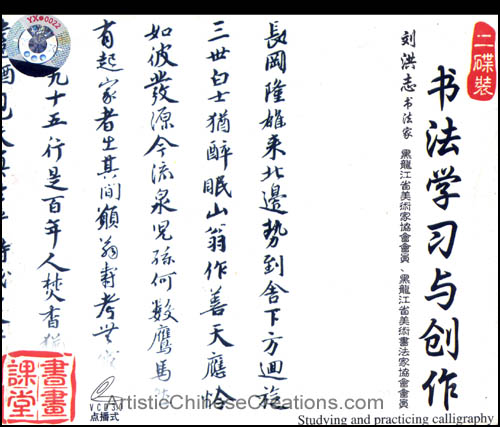 YX●0022
二碟装
书法学习与创作
刘洪志书法家 黑龍江省美術家協會會員、黑龍江省美術書法家協會會員
長岡隆雄東北邊勢到舍下方迴旋
三世白士猶醉眠山翁作善天應怜
如彼發源今流泉兒孫何數鷹馬
有起家者生其間願翁壽考無
九十五行是百年人焚香
書畫課堂
VCD
点播式
ArtisticChineseCreations.com
Studying and practicing calligraphy